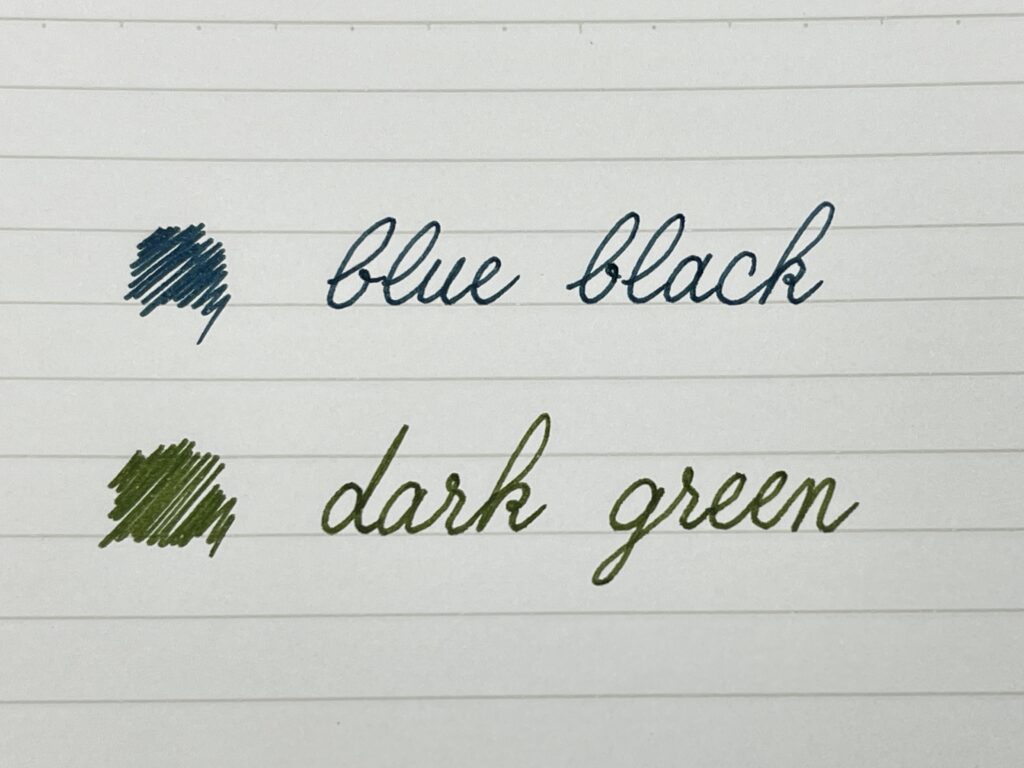 blue black
dark green